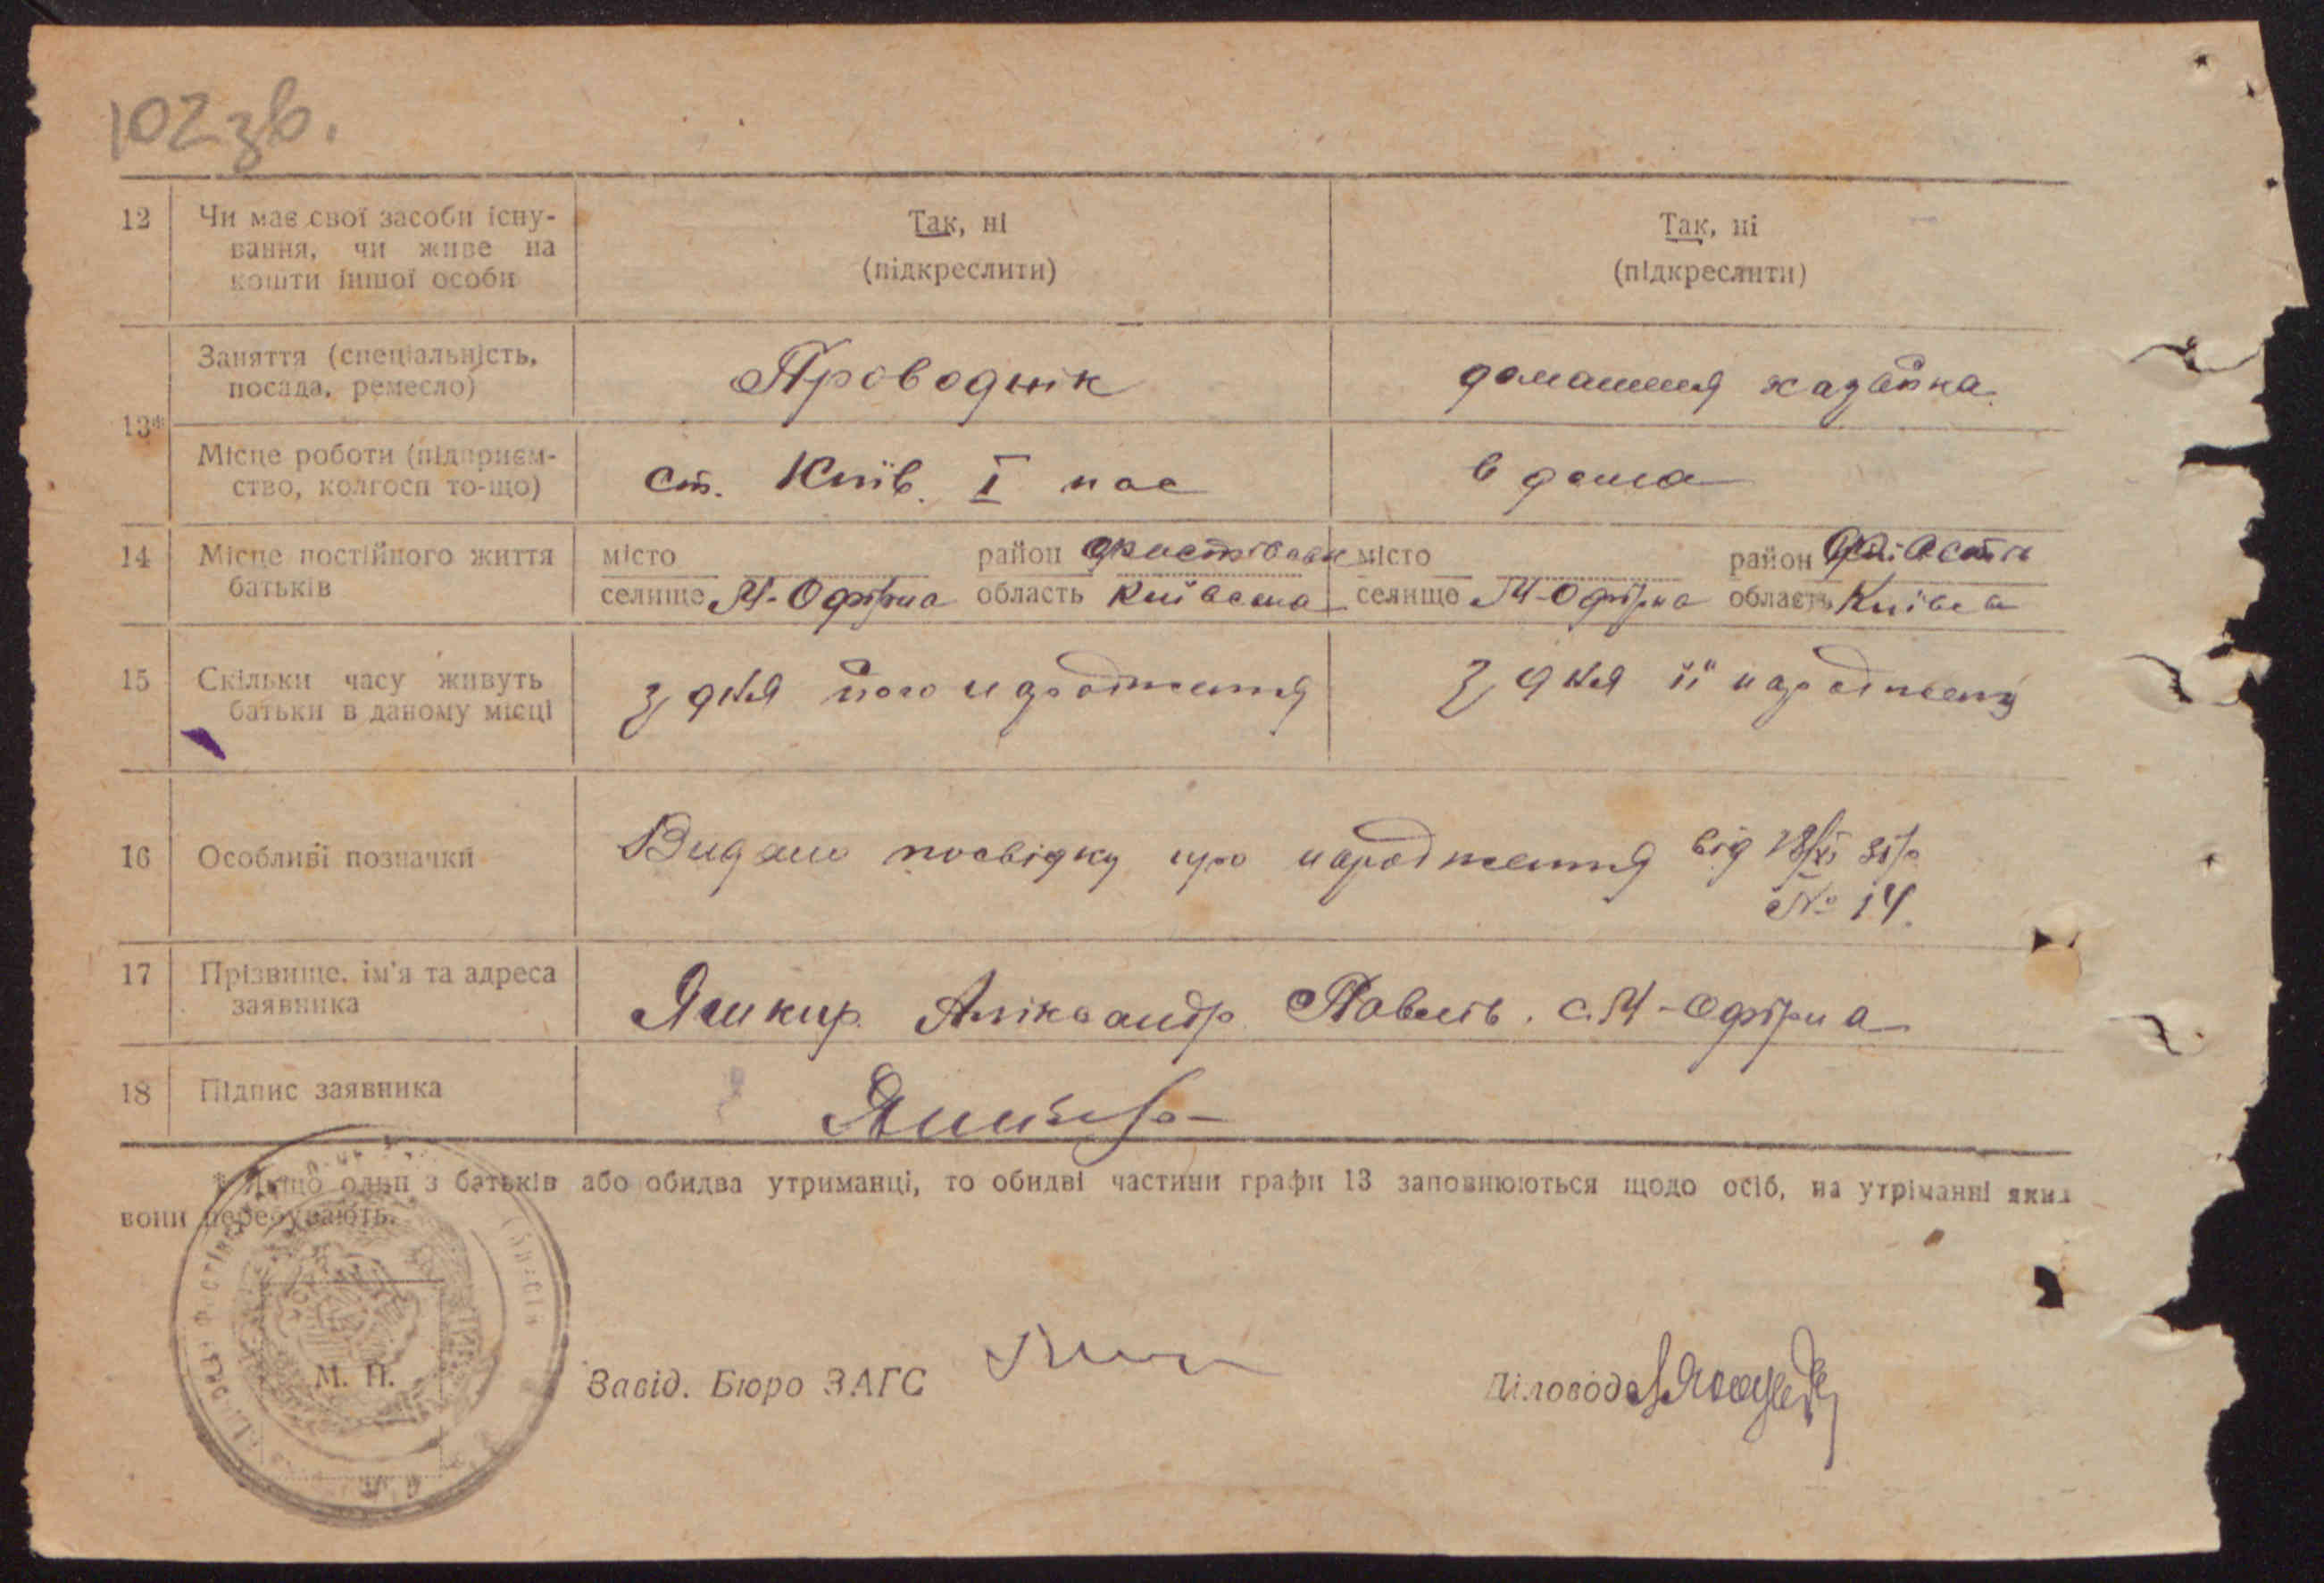 102 зв.
12 Чи має свої засоби існу- Так, ні Так, ні
вання, чи живе на (підкреслити) (підкреслити)
кошти іншої особи
Заняття (спеціальність, Проводнік домашня хазайка
посада, ремесло)
13*
Місце роботи (підприєм- ст. Київ. I пас в дома
ство, колгосп то-що)
14 Місце постійного життя місто район Фастівськ місто район
батьків селище М-Офірна область Київська селище М-Офірна область Київсь
15 Скільки часу живуть з дня його народження з дня її народжень
батьки в даному місці
16 Особливі позначки Видано посвідку про народження від
№ 14.
17 Прізвище, ім'я та адреса Яшкир Аліксандр Павлів. с. М-Офірна
заявника
18 Підпис заявника
* Якщо один з батьків або обидва утриманці, то обидві частини графи 13 заповнюються щодо осіб, на утріманні яких
вони перебувають.
М. П. Завід. Бюро ЗАГС Діловод